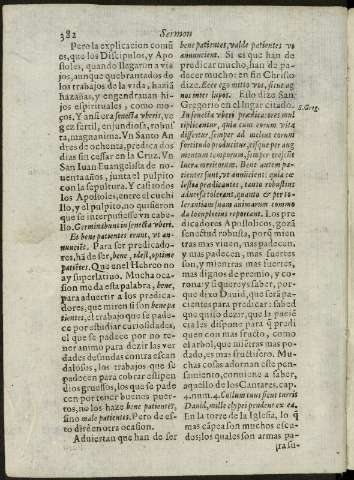 382
Sermon
Pero la explicacion comũ
es, que los Discipulos, y Apo
stoles, quando llegaron a vie
jos, aunque quebrantados de
los trabajos de la vida, harã
hazañas, y engendrauan hi-
jos espirituales, como mo-
ços, Y ansi era senecta vberi, ve
gez fertil, enjundiosa, robu
sta, magnanima. Vn Santo An
dres de ochenta, predica dos
dias sin cessar en la Cruz. Vn
San Iuan Euangelista de no-
uenta años, junta el pulpito
con la sepultura. Y casi todos
los Apostoles, entre el cuchi
llo, y el pulpito, no quisieron
que se interpusiesse vn cabe-
llo. Germinabunt in senecta vberi.
Et bene patientes erunt, vt an-
nuncient. Para ser predicado-
res, ha de ser, bene, idest, optime
patientes. Que en el Hebreo no
ay superlatiuo. Mucha oca-
sion me da esta palabra, bene,
para aduertir a los predica-
dores, que miren si son bene pa
tientes, el trabajo que se pade-
ce por estudiar curiosidades,
el que se padece por no te-
ner animo para dezir las ver
dades desnudas contra escan
dalosos, los trabajos que se
padecen para cobrar estipen
dios gruessos, los que se pade
cen por tener buenos puer-
tos, no los haze bene patientes,
sino male patientes. Pero de es-
to dirè en otra ocasion.
Aduiertan que han de ser
bene patientes, valde patientes vt
annuncient. Si es que han de
predicar mucho, han de pa-
decer mucho: en fin Christo
dize. Ecce ego mitto vos, sicut ag-
nos inter lupos. Esto dize San
Gregorio en el lugar citado.
S. Greg.
In senecta vberi prædicatores mul
tiplicantur, quia cum eorum vita
differtur, semper ad melius eorum
fortitudo producitur, eisque per aug
mentum temporum, semper crescũt
lucra meritorum. Bene autem pa-
tientes sunt, vt annũcient: quia cæ
lestia prædicantes, tanto robustius
aduersa tolerant, quanto & per to-
lerantiam suam animarum commo
da locupletius reportant. Los pre
dicadores Apostolicos, gozã
senectud robusta, porq̃ mien
tras mas viuen, mas padecen,
y mas padecen, mas fuertes
son, y mientras mas fuertes,
mas dignos de premio, y co-
rona: y si quereys saber, por-
que dixo Dauid, que serã pa-
cientes para predicar: sabed
que quiso dezir, que la pacié
cia les dispone para q̃ predi
quen con mas fructo, como
el arbol, que miẽtras mas po
dado, es mas fructifero. Mu-
chas cosas adornan este pen-
samiento, conuiene a saber,
aquello de los Cantares, cap.
4. num. 4. Collum tuum sicut turris
Dauid, mille clypei pendent ex ea.
En la torre de la Iglesia, lo q̃
mas cãpea son muchos escu-
dos; los quales son armas pa-
ra su-